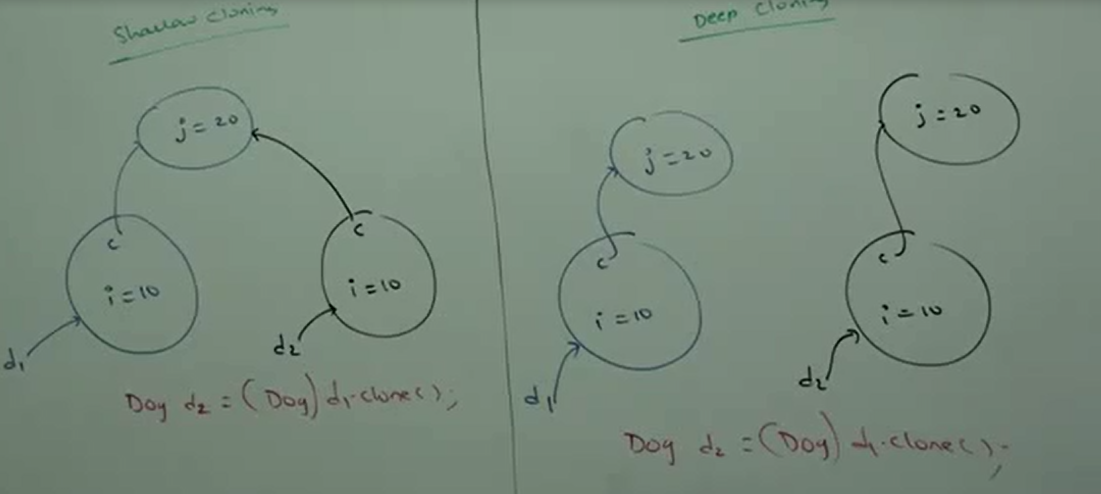 Shallow Cloning
j = 20
c
i = 10
d1
c
i = 10
d2
Dog d2 = (Dog) d1.clone();
Deep Cloning
j = 20
c
i = 10
d1
j = 20
c
i = 10
d2
Dog d2 = (Dog) d1.clone();